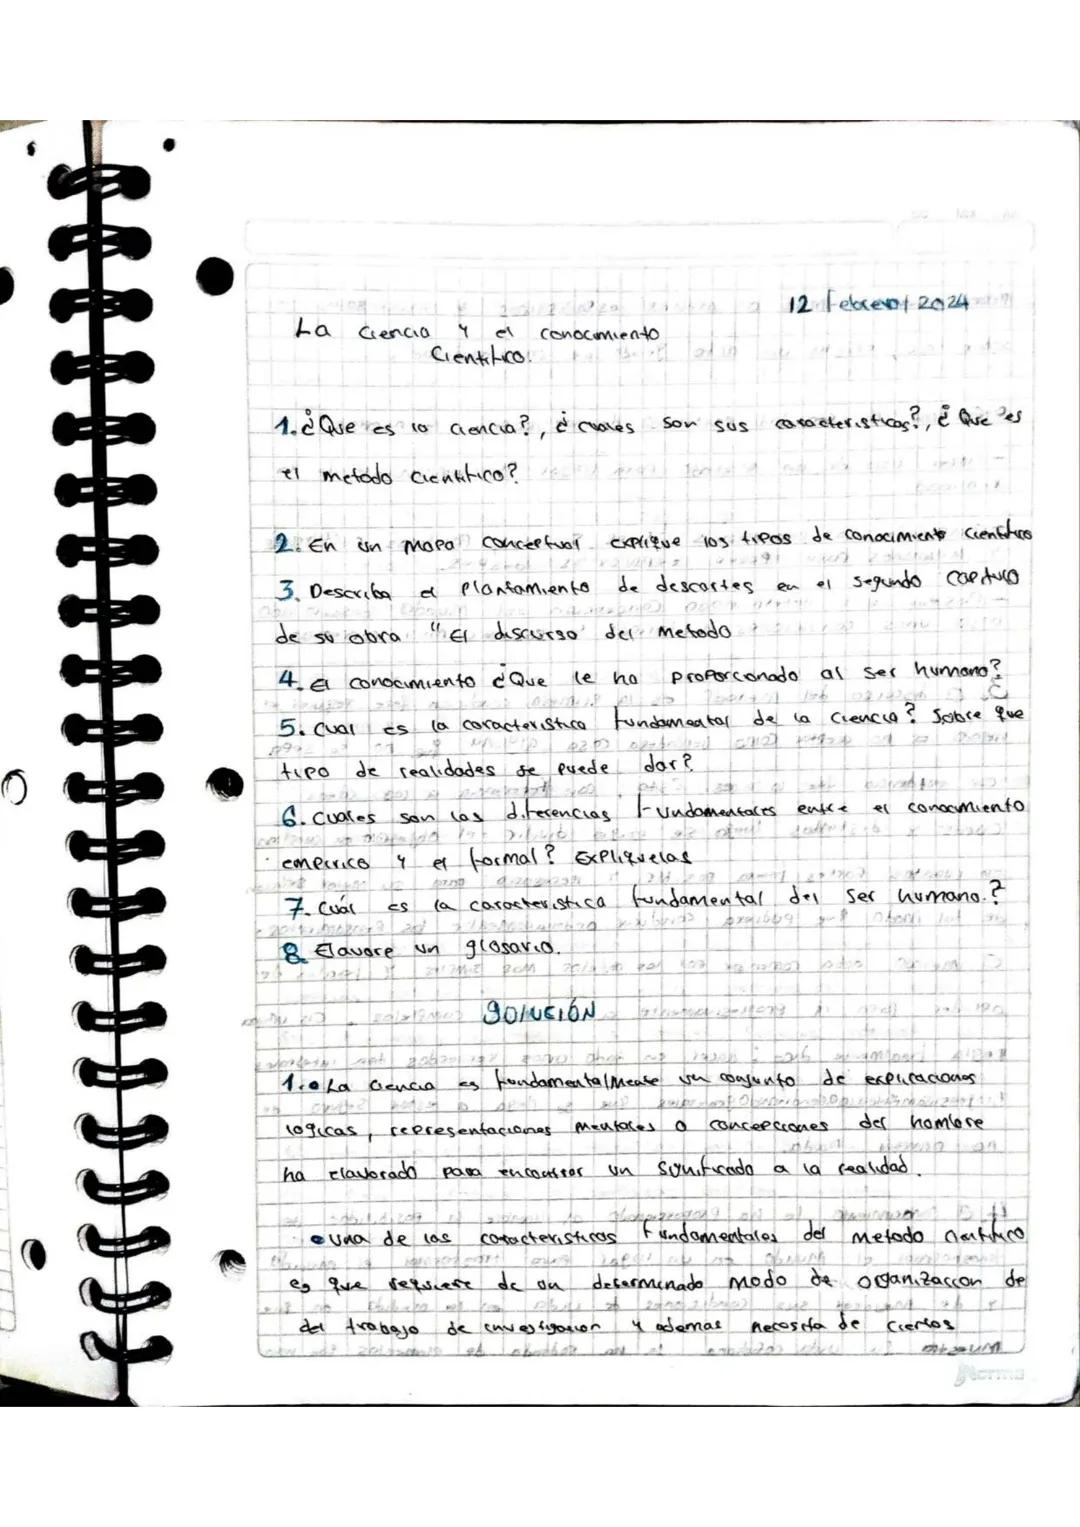 12 Febrero/2024
La Ciencia y el conocimiento
Cientifico.
1. ¿Que es la ciencia?, ¿cuales son sus caracteristicas?, ¿Que es
el metodo Cientifico?
2. En un mapa conceptual explique los tipos de conocimiento cientifico
3. Describa el Plantamiento de descartes en el segundo capitulo
de su obra "El discurso del metodo
4. El conocimiento ¿Que le ha proporcionado al ser humano?
5. Cual es la caracteristica fundamental de la ciencia? Sobre que
tipo de realidades se puede dar?
6. Cuales son las diferencias Fundamentales entre el conocimiento
empirico y el formal? Expliquelas
7. Cuál es la caracteristica fundamental del ser humano.?
8 Elavore un glosario.
SOlUCIÓN
1. • La ciencia es fundamentalmente un conjunto de explicaciones
logicas, representaciones mentales o concepciones del hombre
ha elavorado para encontrar un significado a la realidad.
• una de las caracteristicas Fundamentales del metodo cientifico
es que requiere de un determinado modo de organizacion de
del trabajo de investigacion y ademas necesita de ciertos
Norma